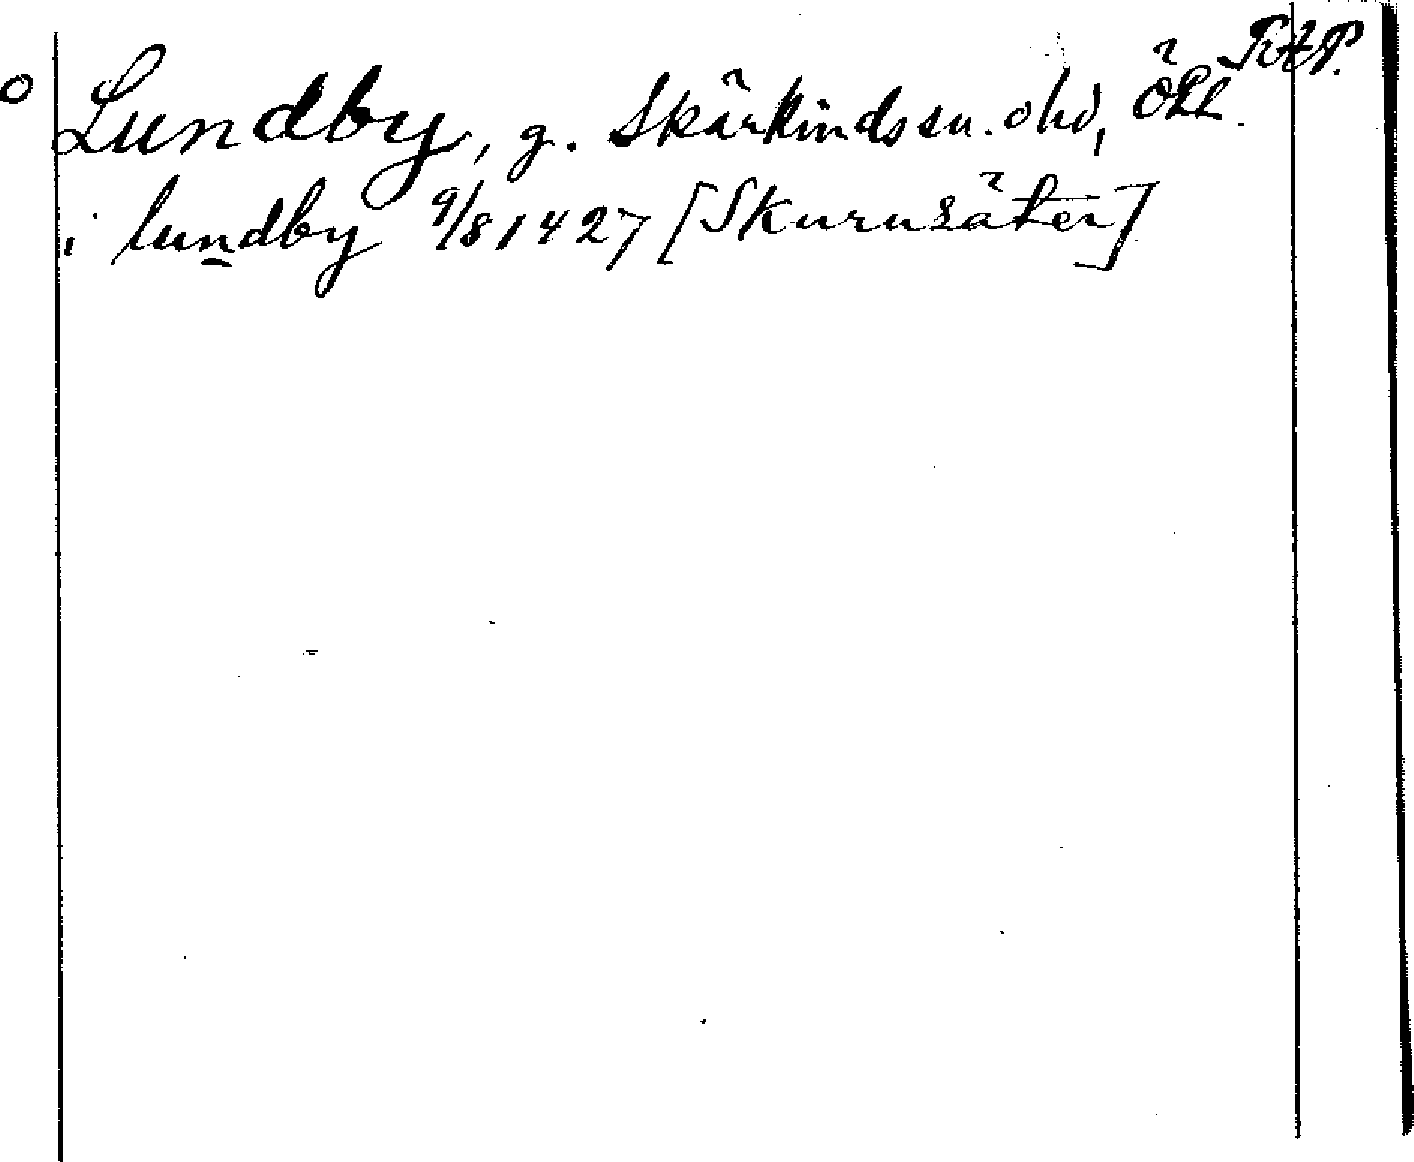 RAP.
o Lundby, g. Skärkinds sn. o hd, ÖGL.
i lundby 9/8 1427 [Skurusäter]